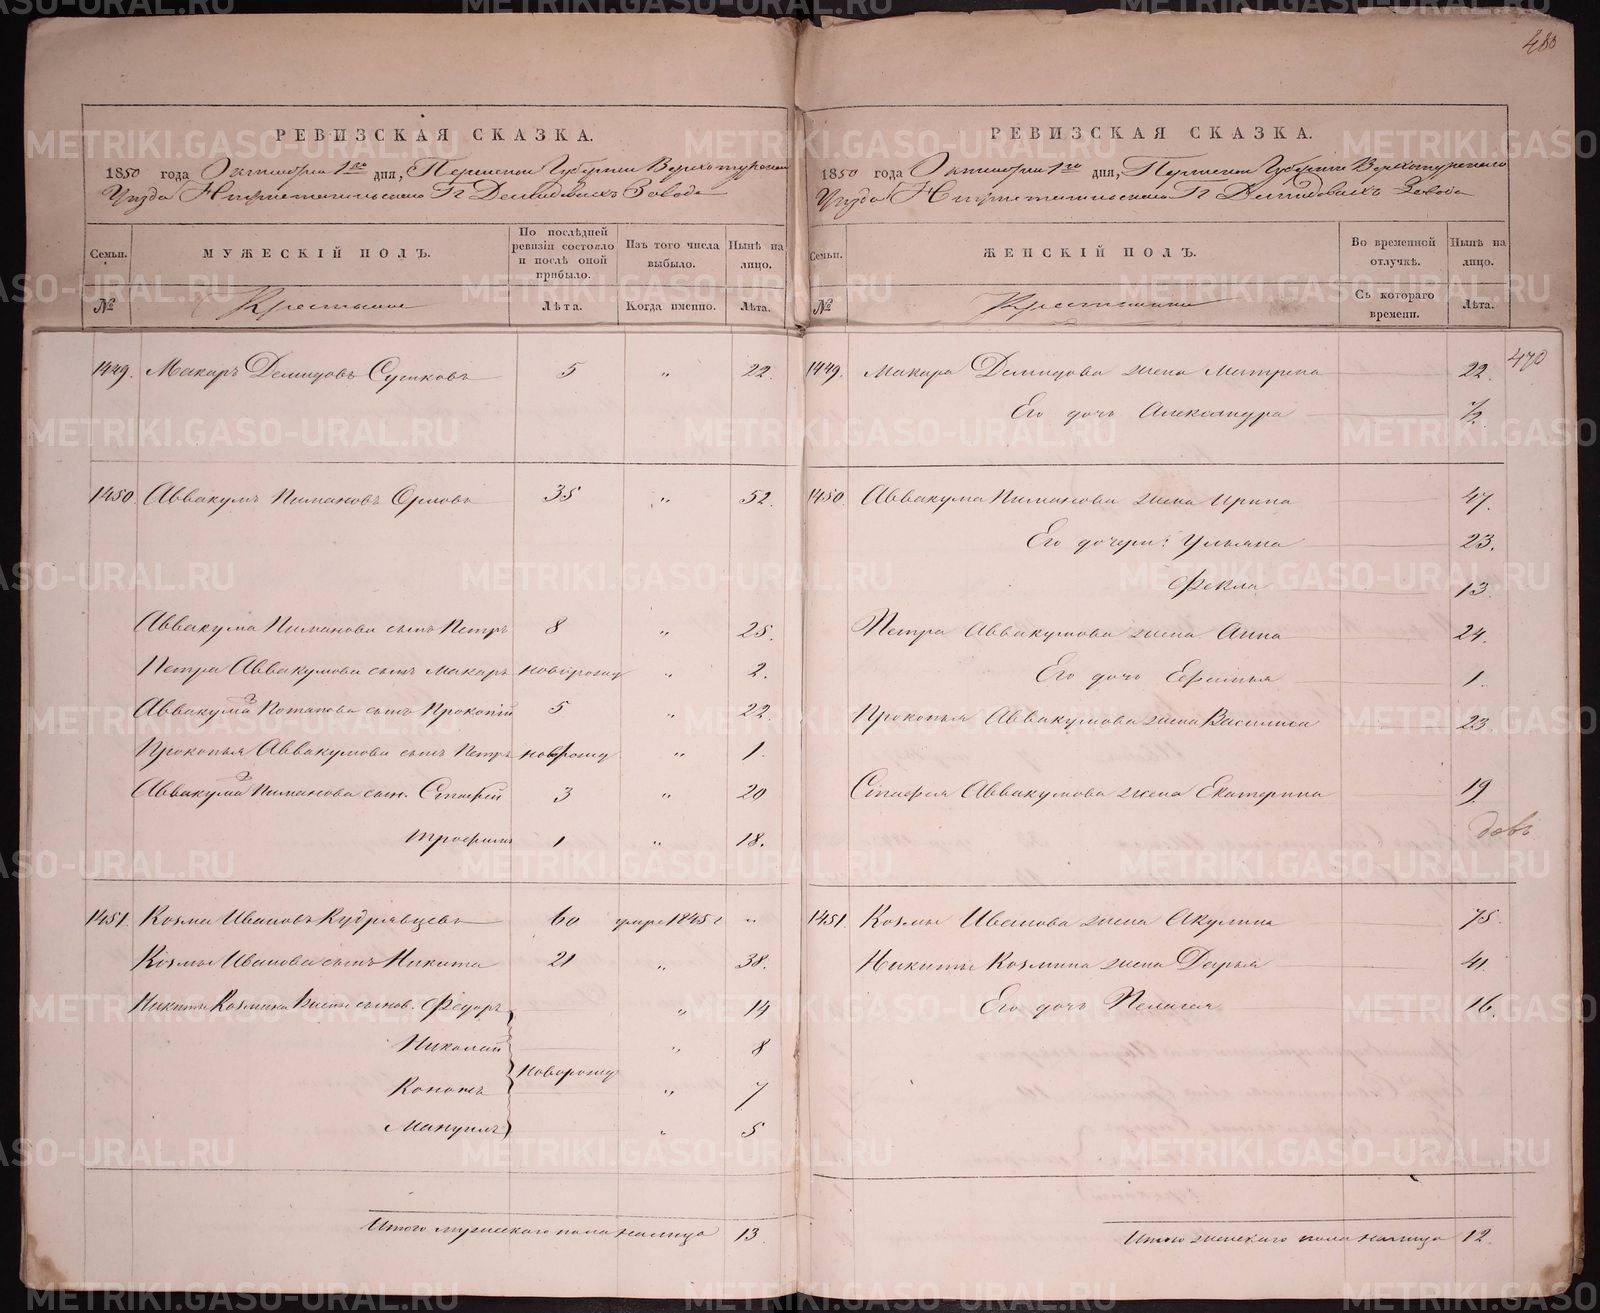 480
РЕВИЗСКАЯ СКАЗКА.
1850 года Октября 1го дня, Пермской Губернии Верхотурскаго
Уѣзда Нижнетагильскаго Гг Демидовыхъ Завода
Семьи. МУЖЕСКІЙ ПОЛЪ. По послѣдней ревизіи состояло и послѣ оной прибыло. Изъ того числа выбыло. Нынѣ на лицо.
№ Крестьяне Лѣта. Когда именно. Лѣта.
1449. Макаръ Демидовъ Сушковъ 5 " 22.
1450. Аввакумъ Пимановъ Орловъ 35 " 52.
Аввакума Пиманова сынъ Петръ 8 " 25.
Петра Аввакумова сынъ Макаръ новорожд " 2.
Аввакума 2 Пиманова сынъ Прокопій 5 " 22.
Прокопья Аввакумова сынъ Петръ новорожд " 1.
Аввакума 3 Пиманова сын. Єпифей 3 " 20
Трофимъ 1 " 18.
1451. Козма Ивановъ Кудрявцевъ 60 умре 1845 г "
Козмы Иванова сынъ Никита 21 " 38.
Никиты Козмина сынов. Ѳедоръ " 14
Николай " 8
новорожд
Кононъ " 7
Мануилъ " 5
Итого мужескаго пола налицо 13.
РЕВИЗСКАЯ СКАЗКА.
1850 года Октября 1го дня, Пермской Губерніи Верхотурскаго
Уѣзда Нижнетагильскаго Гг Демидовыхъ Завода
Семьи. ЖЕНСКІЙ ПОЛЪ. Во временной отлучкѣ. Нынѣ на лицо.
№ Крестьянки Съ котораго времени. Лѣта.
470
1449. Макара Демидова жена Матрена 22.
Его дочь Александра 1/2.
1450. Аввакума Пиманова жена Ирина 47.
Его дочери: Ульяна 23.
Фекла 13.
Петра Аввакумова жена Анна 24.
Его дочь Ефимья 1.
Прокопья Аввакумова жена Василиса 23.
Аввакумова жена Екатерина 19.
1451. Козмы Иванова жена Акулина 75.
Никиты Козмина жена Дарья 41.
Его дочь Пелагея 16.
Итого женскаго пола налицо 12.
METRIKI.GASO-URAL.RU